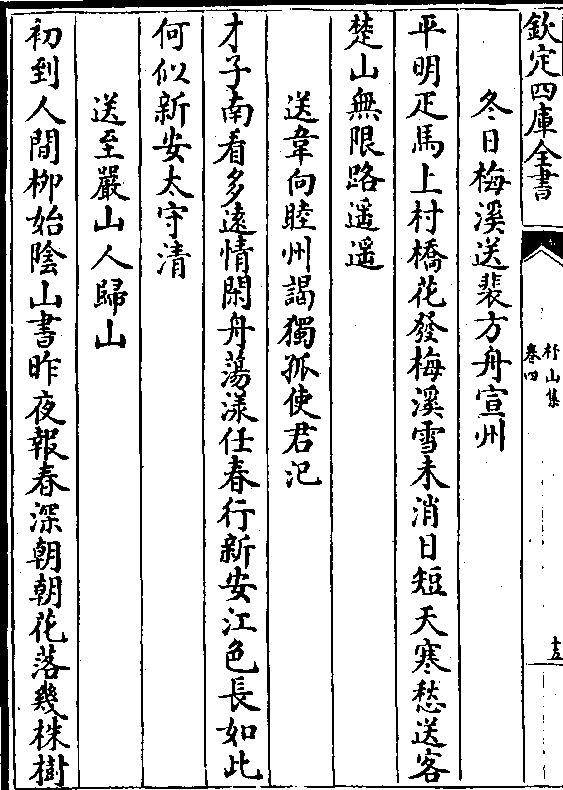 欽定四庫全書
杼山集
卷四
十五
冬日梅溪送裴方舟宣州
平明疋馬上村橋花發梅溪雪未消日短天寒愁送客
楚山無限路遥遥
送韋向睦州謁獨孤使君汜
才子南看多遠情閑舟蕩漾任春行新安江色長如此
何似新安太守清
送至嚴山人歸山
初到人間柳始陰山書昨夜報春深朝朝花落幾株樹